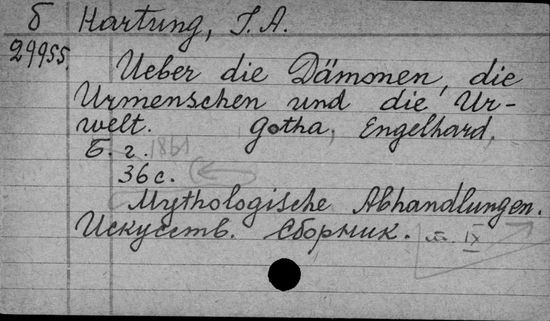 б Hartung, J. A.
29955.
Ueber die Dämonen, die
Urmenschen und die Ur-
welt. Gotha, Engelhard,
Б. г. 1861
36 с.
Mythologische Abhandlungen.
Искусств. Сборник. т. IX